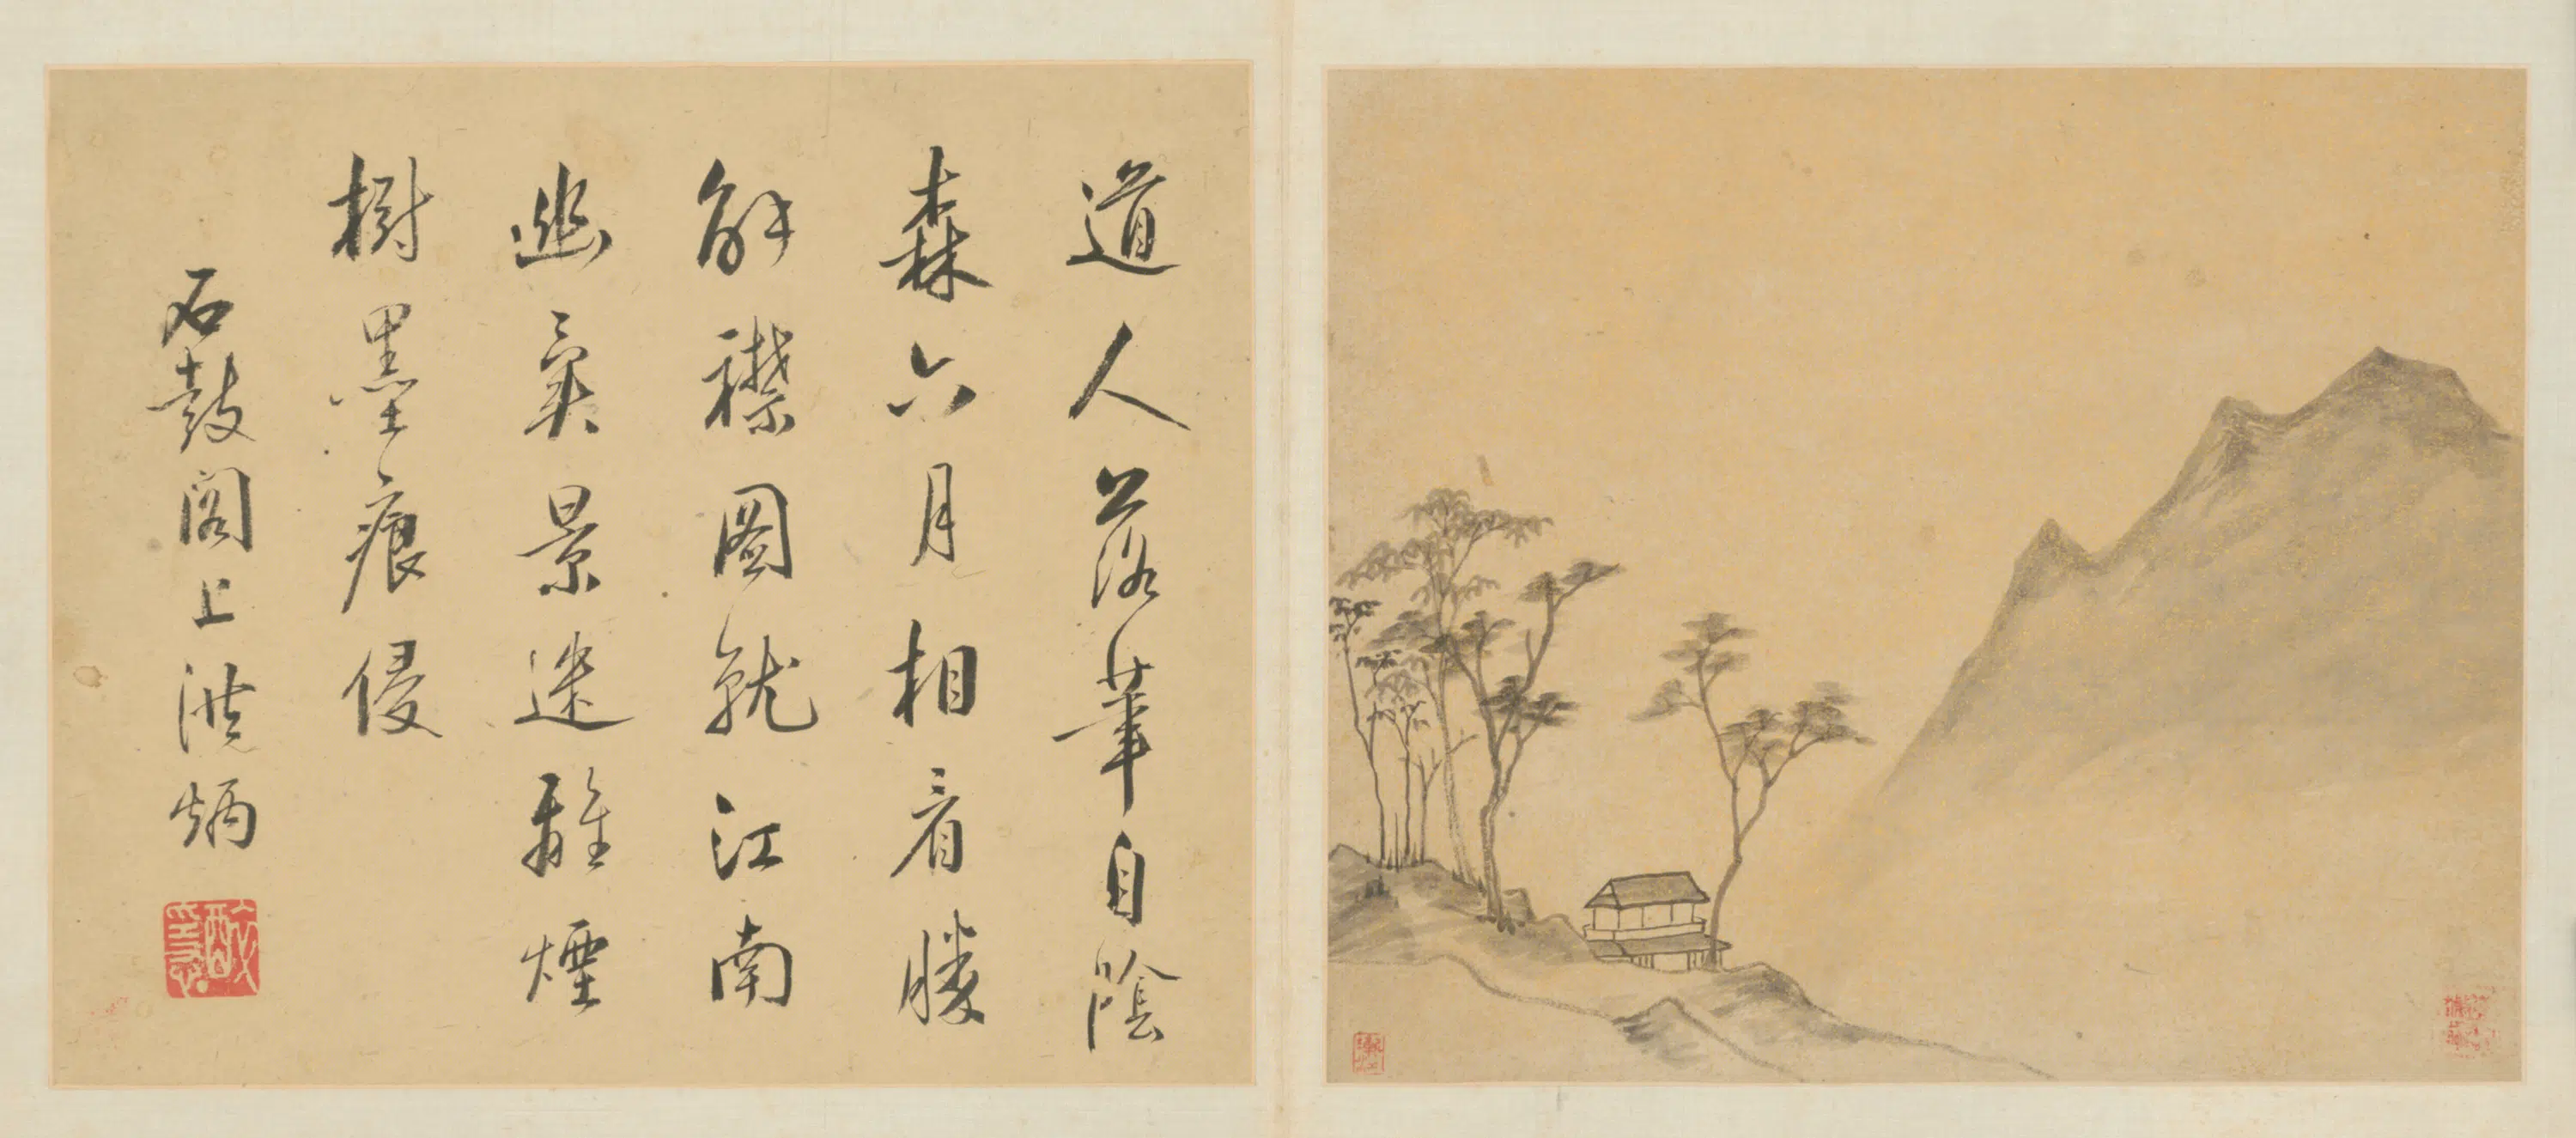 道人落筆自陰
森六月相看勝
解襟圖就江南
幽景迷離煙
樹墨痕侵
石鼓閣上洪炳